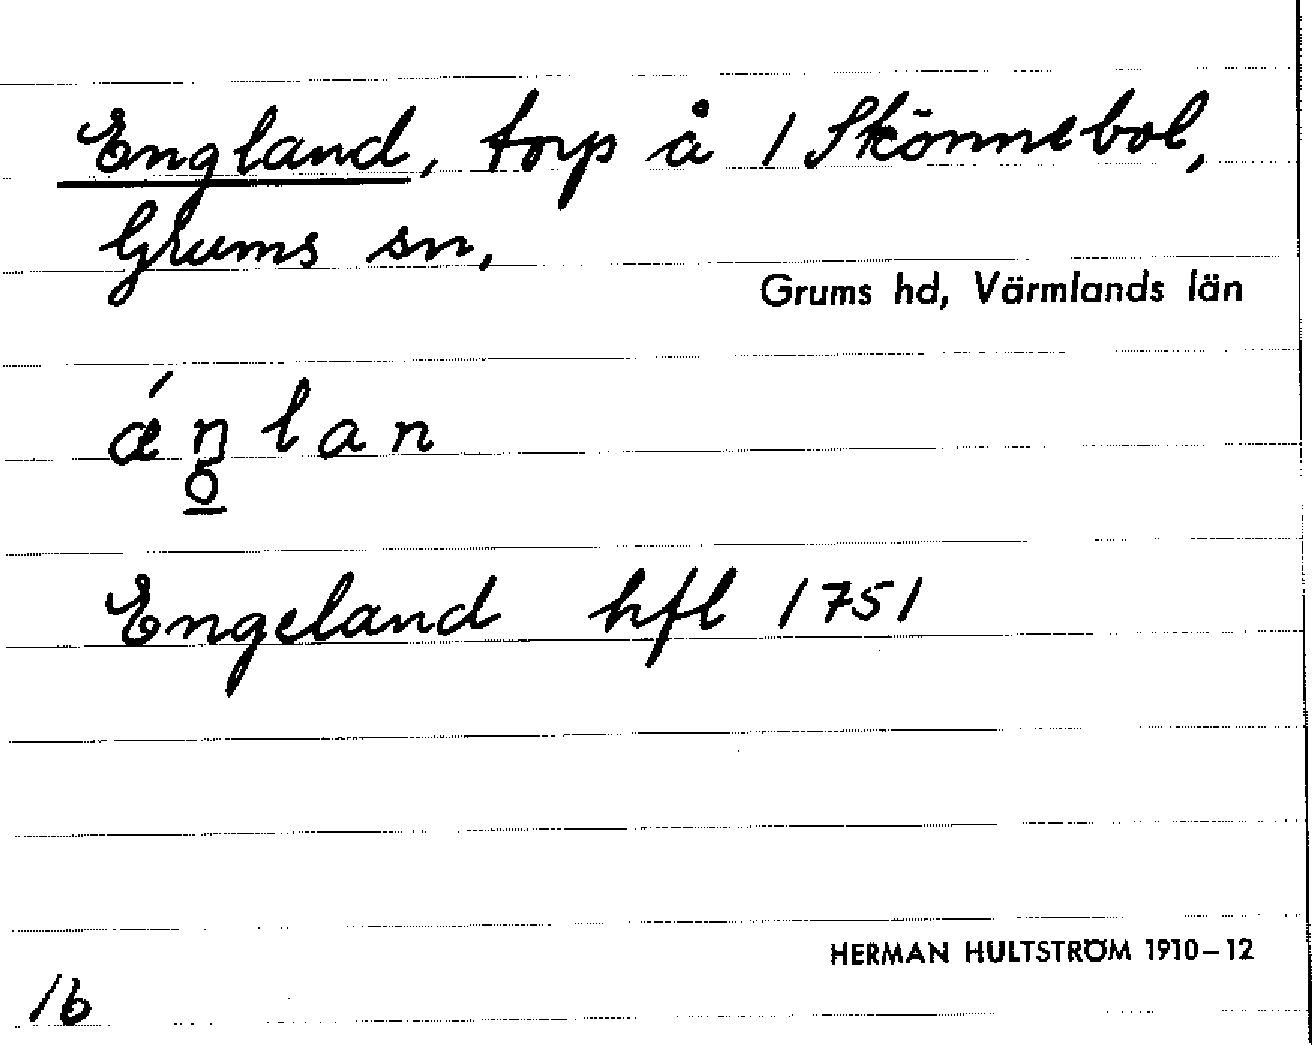 England, torp å 1 Skönnebol,
Grums sn,
Grums hd, Värmlands län
ǽn̥lan
Engeland hfl 1751
HERMAN HULTSTRÖM 1910–12
16